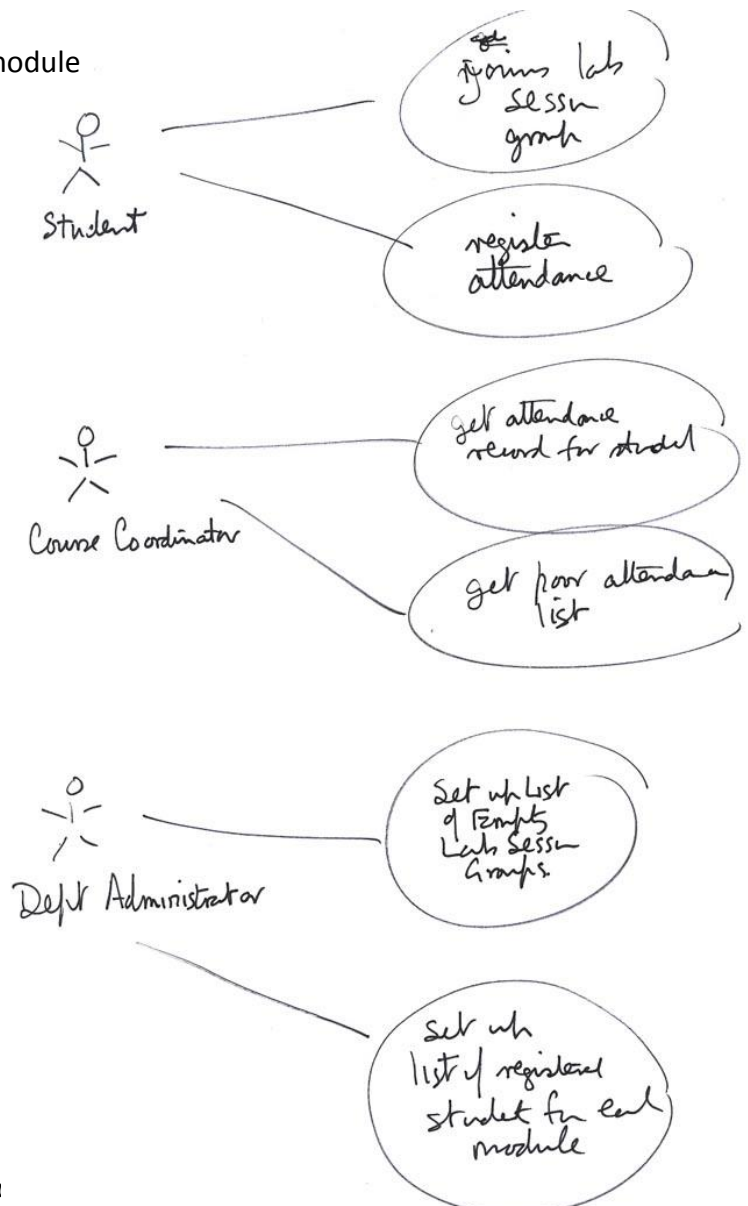 module
joins lab
sessn
group
Student
register
attendance
get attendance
record for studet
Course Coordinator
get poor attendance
list
Dept Administrator
Set up List
of Empty
Lab Sessn
Groups.
set up
list of registered
studet for each
module